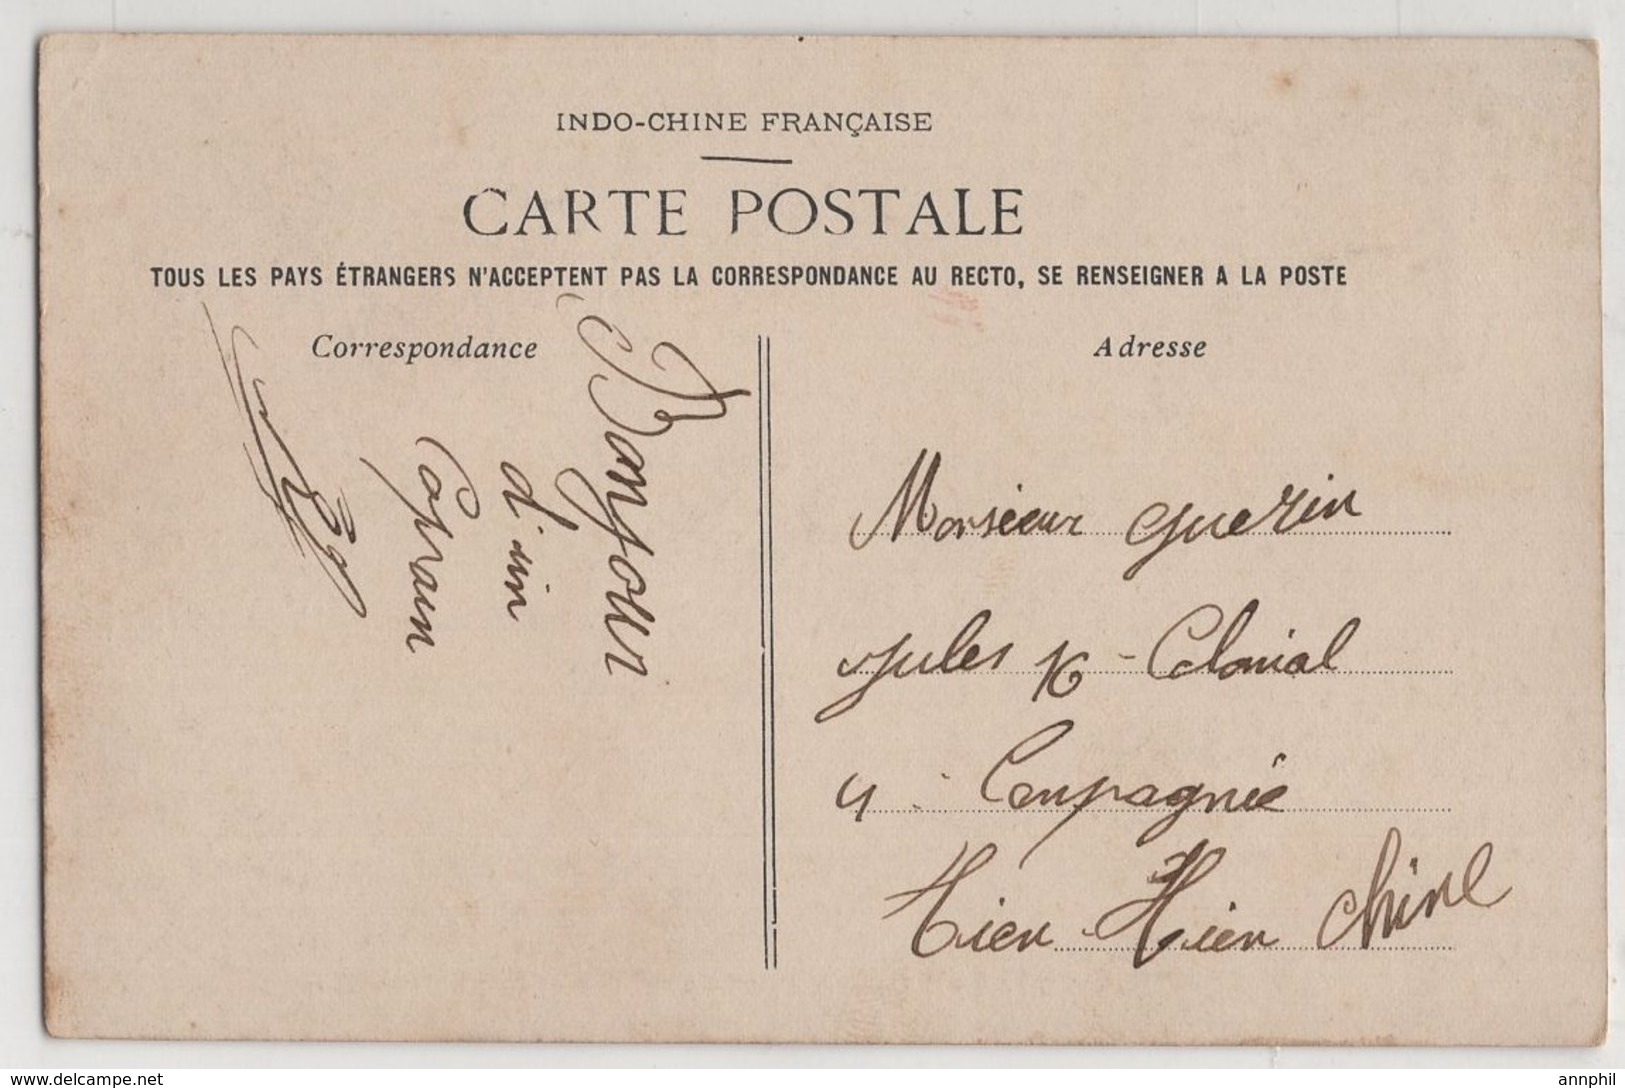 INDO-CHINE FRANÇAISE
CARTE POSTALE
TOUS LES PAYS ÉTRANGERS N'ACCEPTENT PAS LA CORRESPONDANCE AU RECTO, SE RENSEIGNER A LA POSTE
Correspondance
Bonjour
d'un
Copain
Adresse
Monsieur Guerin
Jules Colonial
Compagnie
Tien chine
www.delcampe.net
annphil